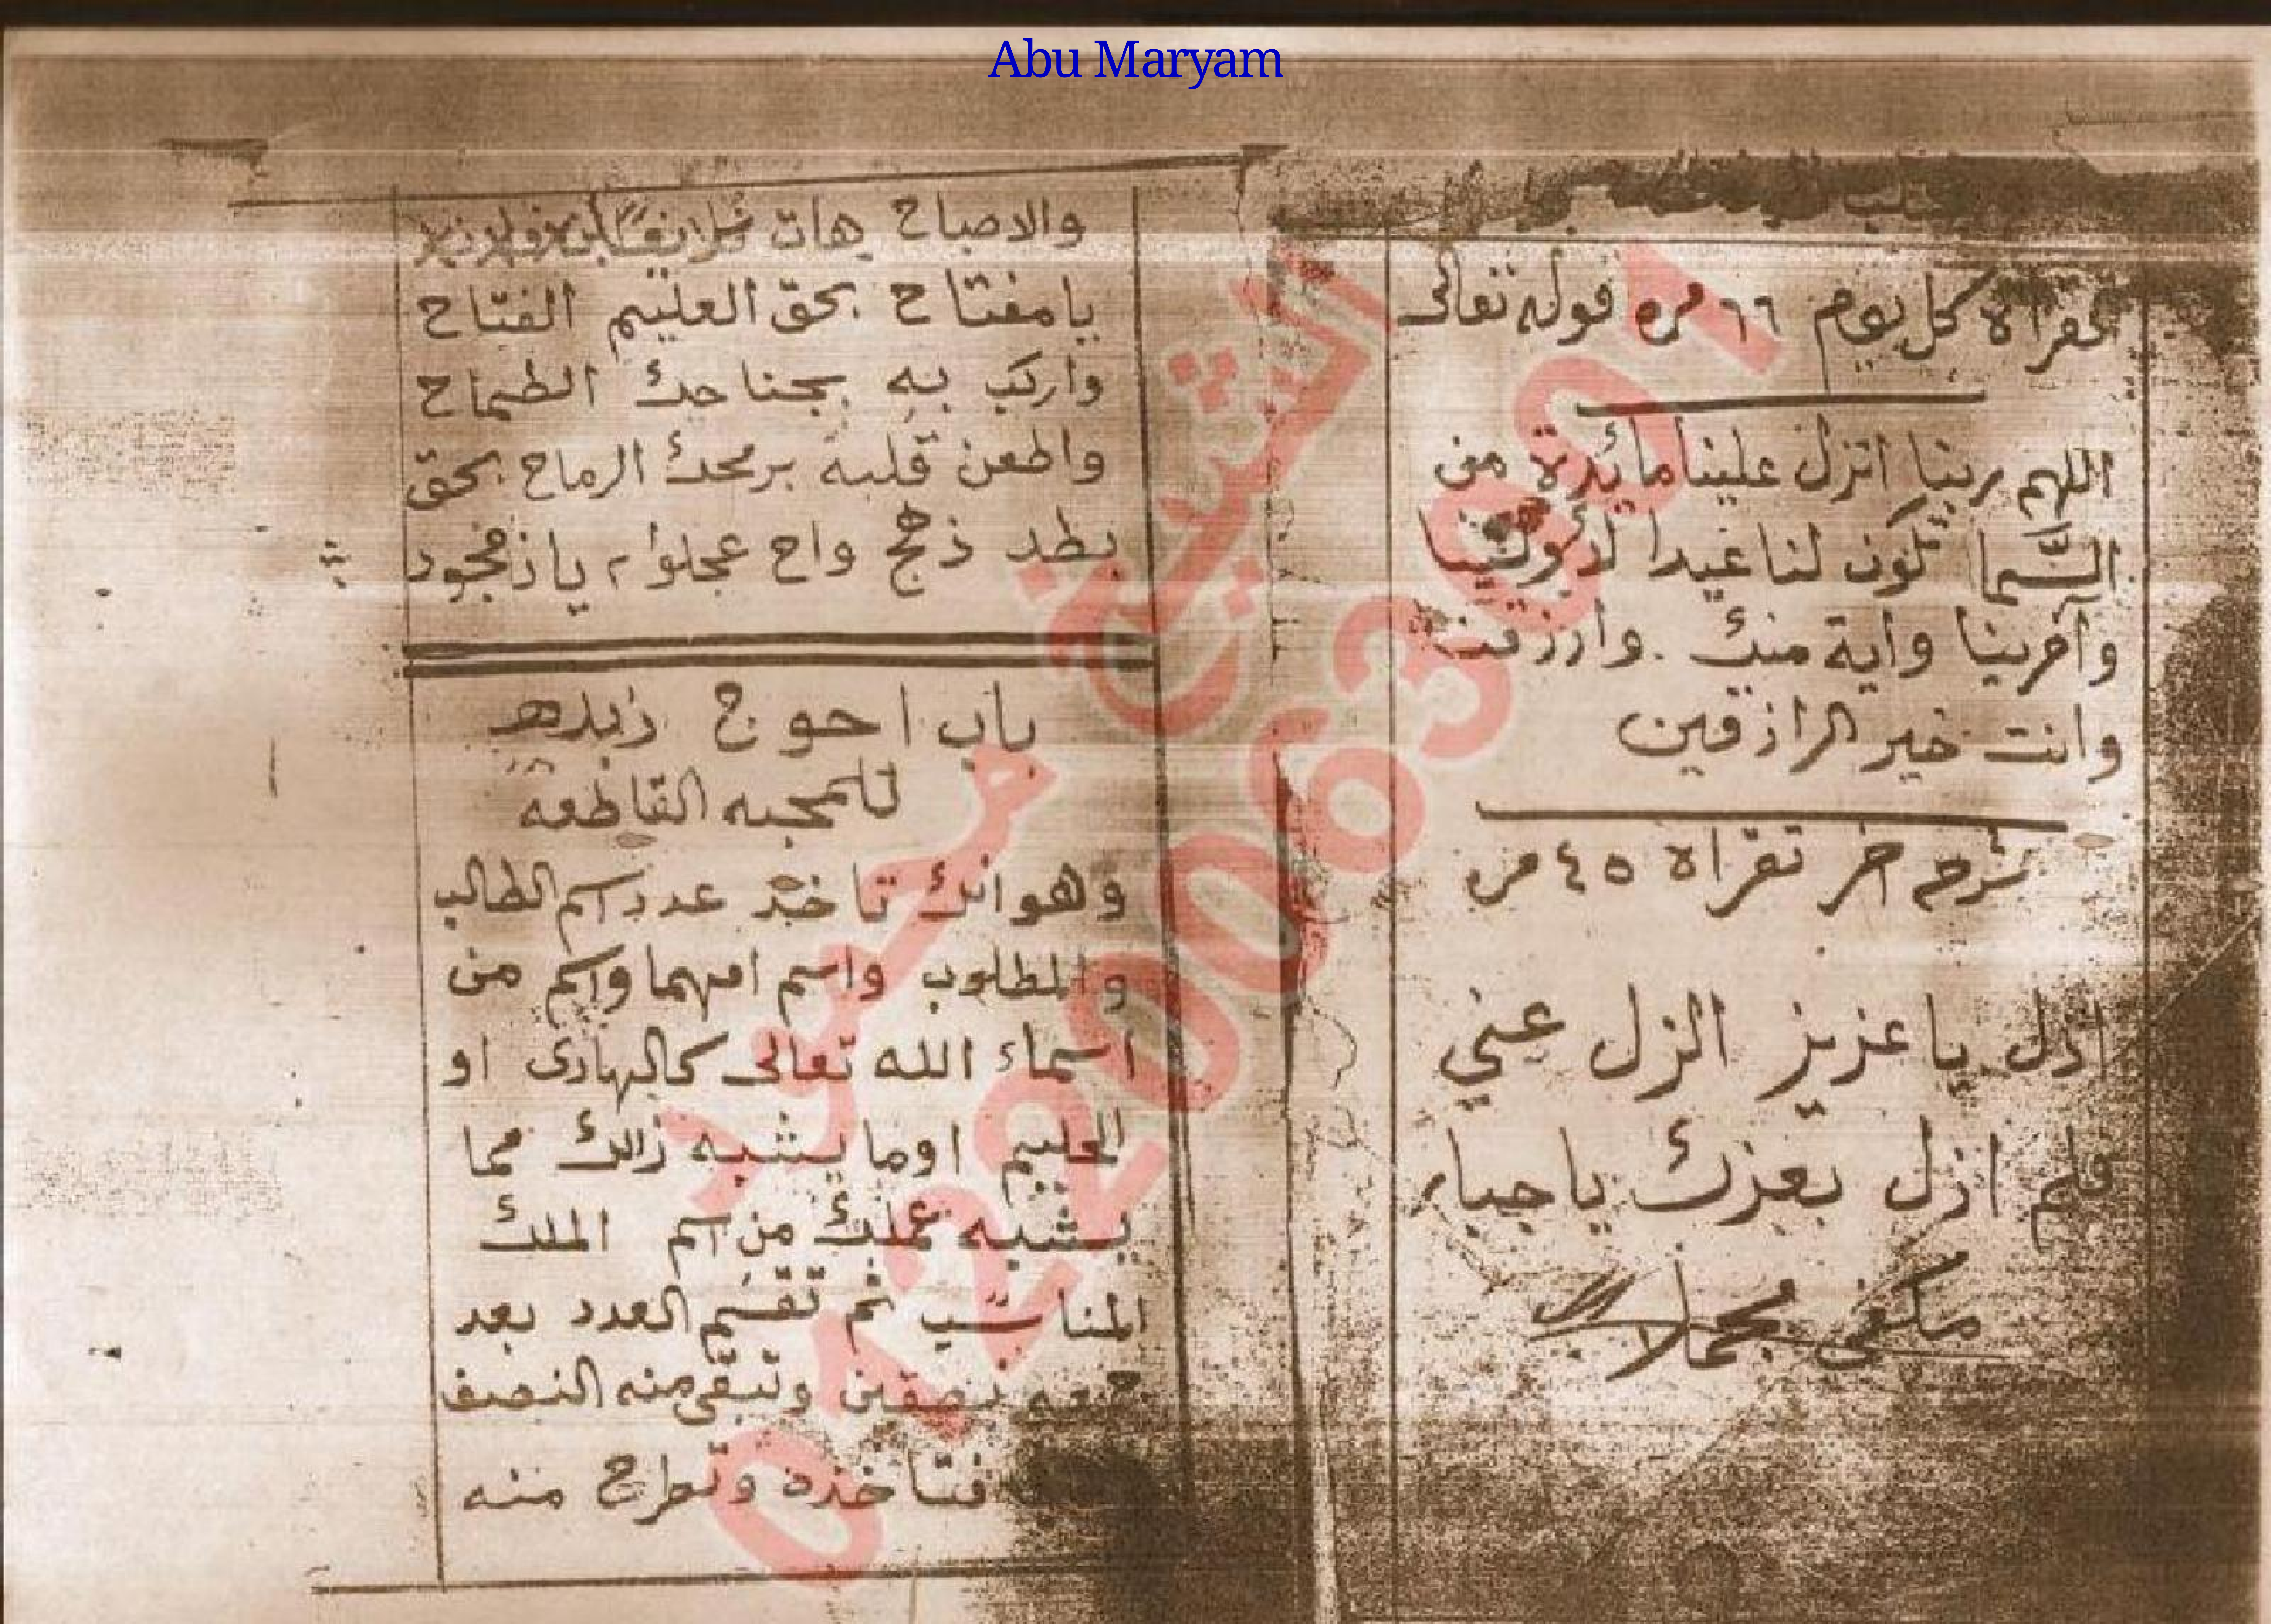 Abu Maryam
كل يوم ٦٦ مره قوله تعالى
اللهم ربنا انزل علينا مائدة من
السما تكون لنا عيدا لأولنا
وآخرينا واية منك . وارزقنا
وانت خير الرازقين
تقراه ٤٥ مره
ازل يا عزيز الزل عني
ازل بعزك يا
والاصباح هات
يا مفتاح بحق العليم الفتاح
واركب به بجناحك الطماح
واطعن قلبه برمحك الرماح بحق
بطد زهج واح
باب احوج
للمحبه القاطعه
وهو انك تاخذ عدد اسم الطالب
والمطلوب واسم امهما واسم من
اسماء الله تعالى كالهادى او
الحليم او ما يشبه زالك مما
يشبه عملك من اسم الملك
المناسب ثم تقسم العدد بعد
نصفين وتبقى منه النصف
فتاخذه وتطرح منه
الشيخ
01220063901